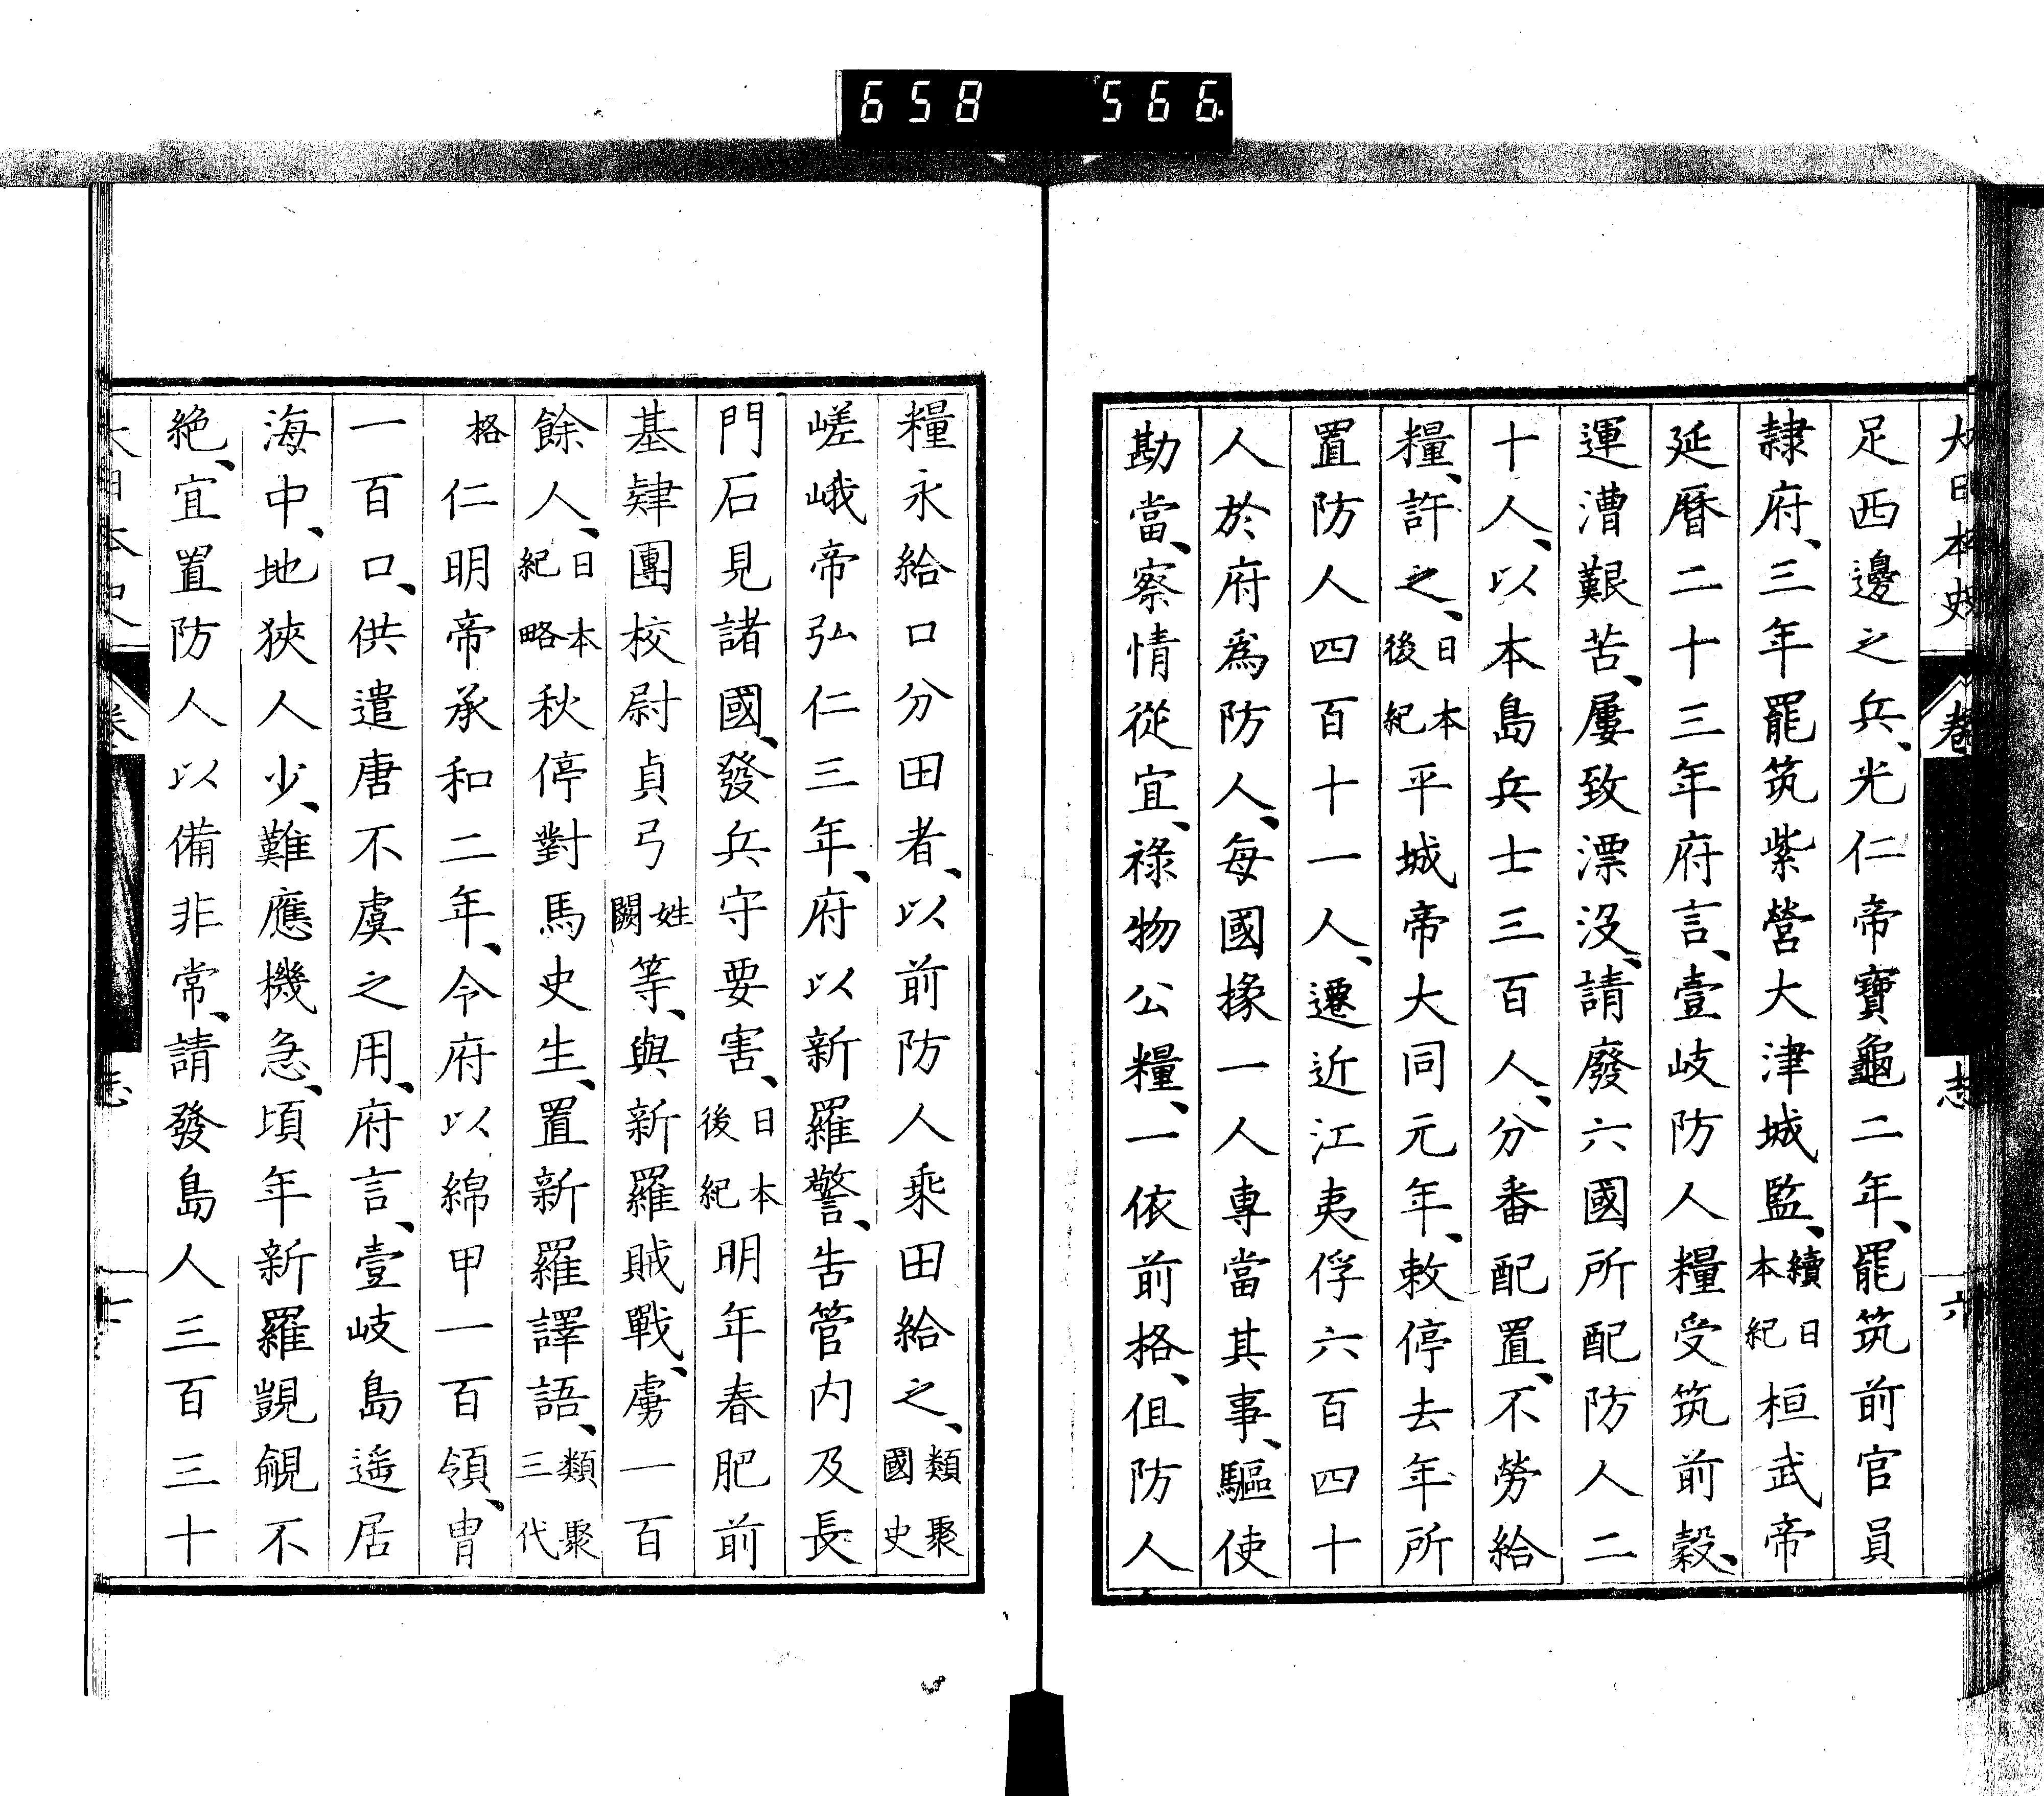 658 566
大日本史 卷 志 六
足西邊之兵、光仁帝寶龜二年、罷筑前官員
隸府、三年罷筑紫營大津城監、續日本紀桓武帝
延曆二十三年府言、壹岐防人糧受筑前穀、
運漕艱苦、屢致漂沒、請廢六國所配防人二
十人、以本島兵士三百人、分番配置、不勞給
糧、許之、日本後紀平城帝大同元年、敕停去年所
置防人四百十一人、遷近江夷俘六百四十
人於府爲防人、每國掾一人專當其事、驅使
勘當、察情從宜、祿物公糧、一依前格、但防人
糧永給口分田者、以前防人乘田給之、類聚國史
嵯峨帝弘仁三年、府以新羅警、告管内及長
門石見諸國、發兵守要害、日本後紀明年春肥前
基肄團校尉貞弓姓闕等、與新羅賊戰、虜一百
餘人、日本紀略秋停對馬史生、置新羅譯語、類聚三代
格仁明帝承和二年、令府以綿甲一百領、冑
一百口、供遣唐不虞之用、府言、壹岐島遙居
海中、地狹人少、難應機急、頃年新羅覬覦不
絶、宜置防人以備非常、請發島人三百三十
大日本史 卷 志 七